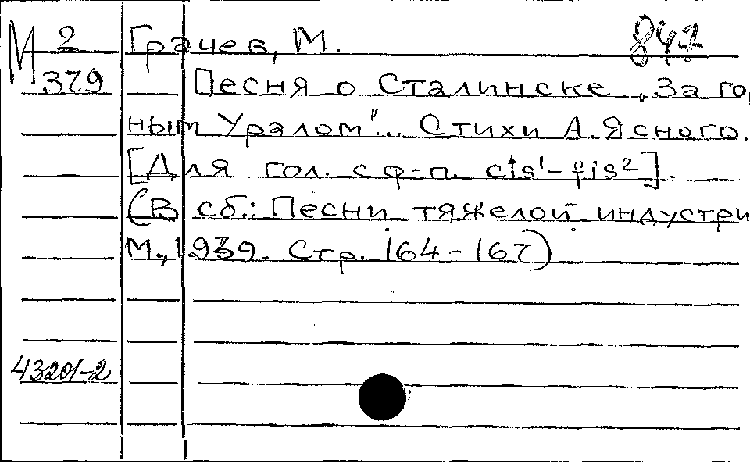 М 2 Грачев, М. 842
379 Песня о Сталинске „За го
ным Уралом"... Стихи А. Ясного.
[Для гол. с ф-п. cis¹-fis²]
(В сб.: Песни тяжелой индустри
М., 1939. Стр. 164-167)
43201-2